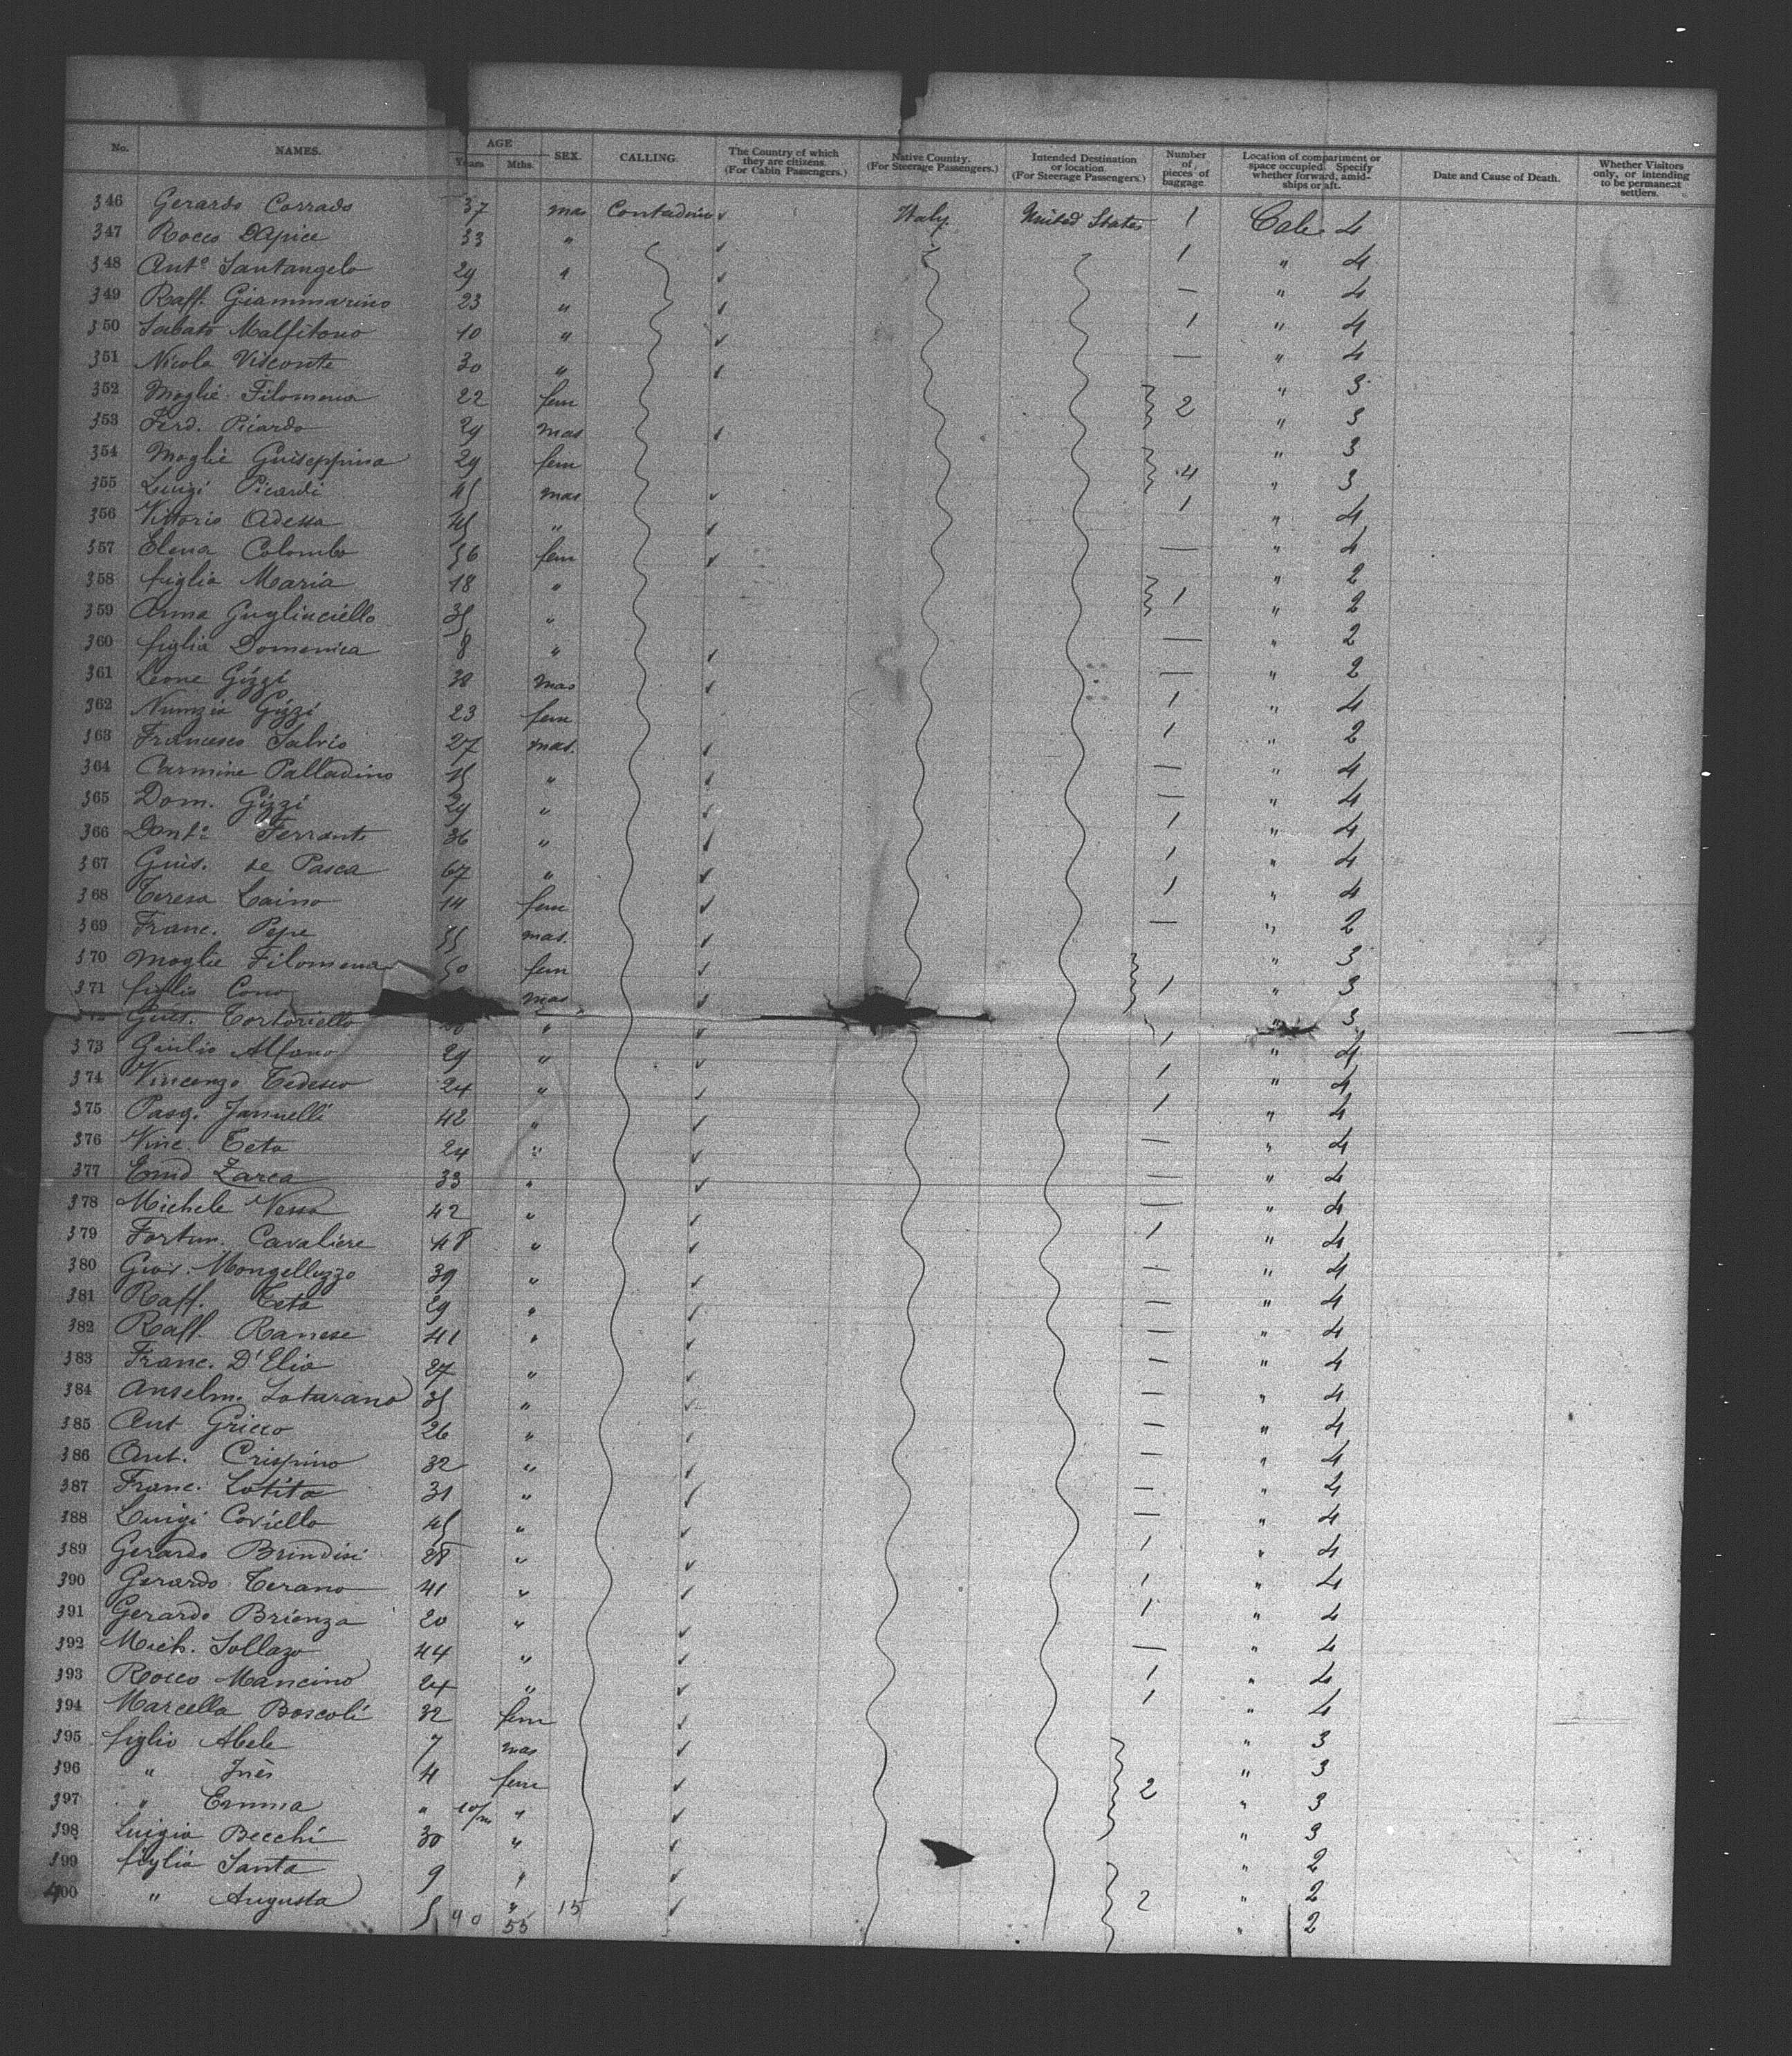 No. NAMES. AGE Years Mths. SEX. CALLING. The Country of which they are citizens. (For Cabin Passengers.) Native Country. (For Steerage Passengers.) Intended Destination or location. (For Steerage Passengers.) Number of pieces of baggage Location of compartment or space occupied. Specify whether forward, amidships or aft. Date and Cause of Death. Whether Visitors only, or intending to be permanent settlers.
346 Gerardo Corrado 37 mas Contadino Italy United States 1 Cale 4
347 Rocco D'Apice 33 " 1 " 4
348 Antº Santangelo 29 " — " 4
349 Raff. Giammarino 23 " 1 " 4
350 Sabato Malfitano 10 " — " 4
351 Nicola Visconte 30 " " 3
352 Moglie Filomena 22 fem 2 " 3
353 Ferd. Picardo 29 mas " 3
354 Moglie Guiseppina 29 fem 4 " 3
355 Luigi Picardi 45 mas 1 " 4
356 Vittorio Adessa 45 " — " 4
357 Elena Colombo 36 fem " 2
358 figlia Maria 18 " 1 " 2
359 Anna Gugliuciello 35 " — " 2
360 figlia Domenica 8 " — " 2
361 Leone Gizzi 38 mas 1 " 4
362 Nunzia Gizzi 23 fem 1 " 2
363 Francesco Salvio 27 mas. — " 4
364 Carmine Palladino 15 " — " 4
365 Dom. Gizzi 29 " 1 " 4
366 Dontº Ferrante 36 " 1 " 4
367 Guis. de Pasca 67 " 1 " 4
368 Teresa Laino 14 fem — " 2
369 Franc. Pepe 55 mas. " 3
370 Moglie Filomena 50 fem 1 " 3
371 figlio Cono mas " 3
Guis. Tortoriello " 1 " 4
373 Giulio Alfano 29 " 1 " 4
374 Vincenzo Tedesco 24 " 1 " 4
375 Pasq. Jannelli 42 " — " 4
376 Vinc. Teta 24 " — " 4
377 Emid Zarca 33 " — " 4
378 Michele Nessa 42 " 1 " 4
379 Fortun. Cavaliere 48 " — " 4
380 Giov. Mongelluzzo 39 " — " 4
381 Raff. Teta 29 " — " 4
382 Raff. Ranese 41 " — " 4
383 Franc. D'Elia 27 " — " 4
384 Anselm. Loturano 35 " — " 4
385 Ant Gricco 26 " — " 4
386 Ant. Crispino 32 " — " 4
387 Franc. Lotito 31 " — " 4
388 Luigi Coviello 45 " 1 " 4
389 Gerardo Brindisi 28 " 1 " 4
390 Gerardo Terano 41 " 1 " 4
391 Gerardo Brienza 20 " — " 4
392 Mich. Sollazo 44 " 1 " 4
393 Rocco Mancino 24 " 1 " 4
394 Marcella Boscoli 32 fem " 3
395 figlio Abele 7 mas " 3
396 " Inès 4 fem 2 " 3
397 " Emma " 10/m " " 3
398 Luigia Becchi 30 " " 2
399 figlia Santa 9 " 2 " 2
400 " Augusta 5 " " 2
40 55 15